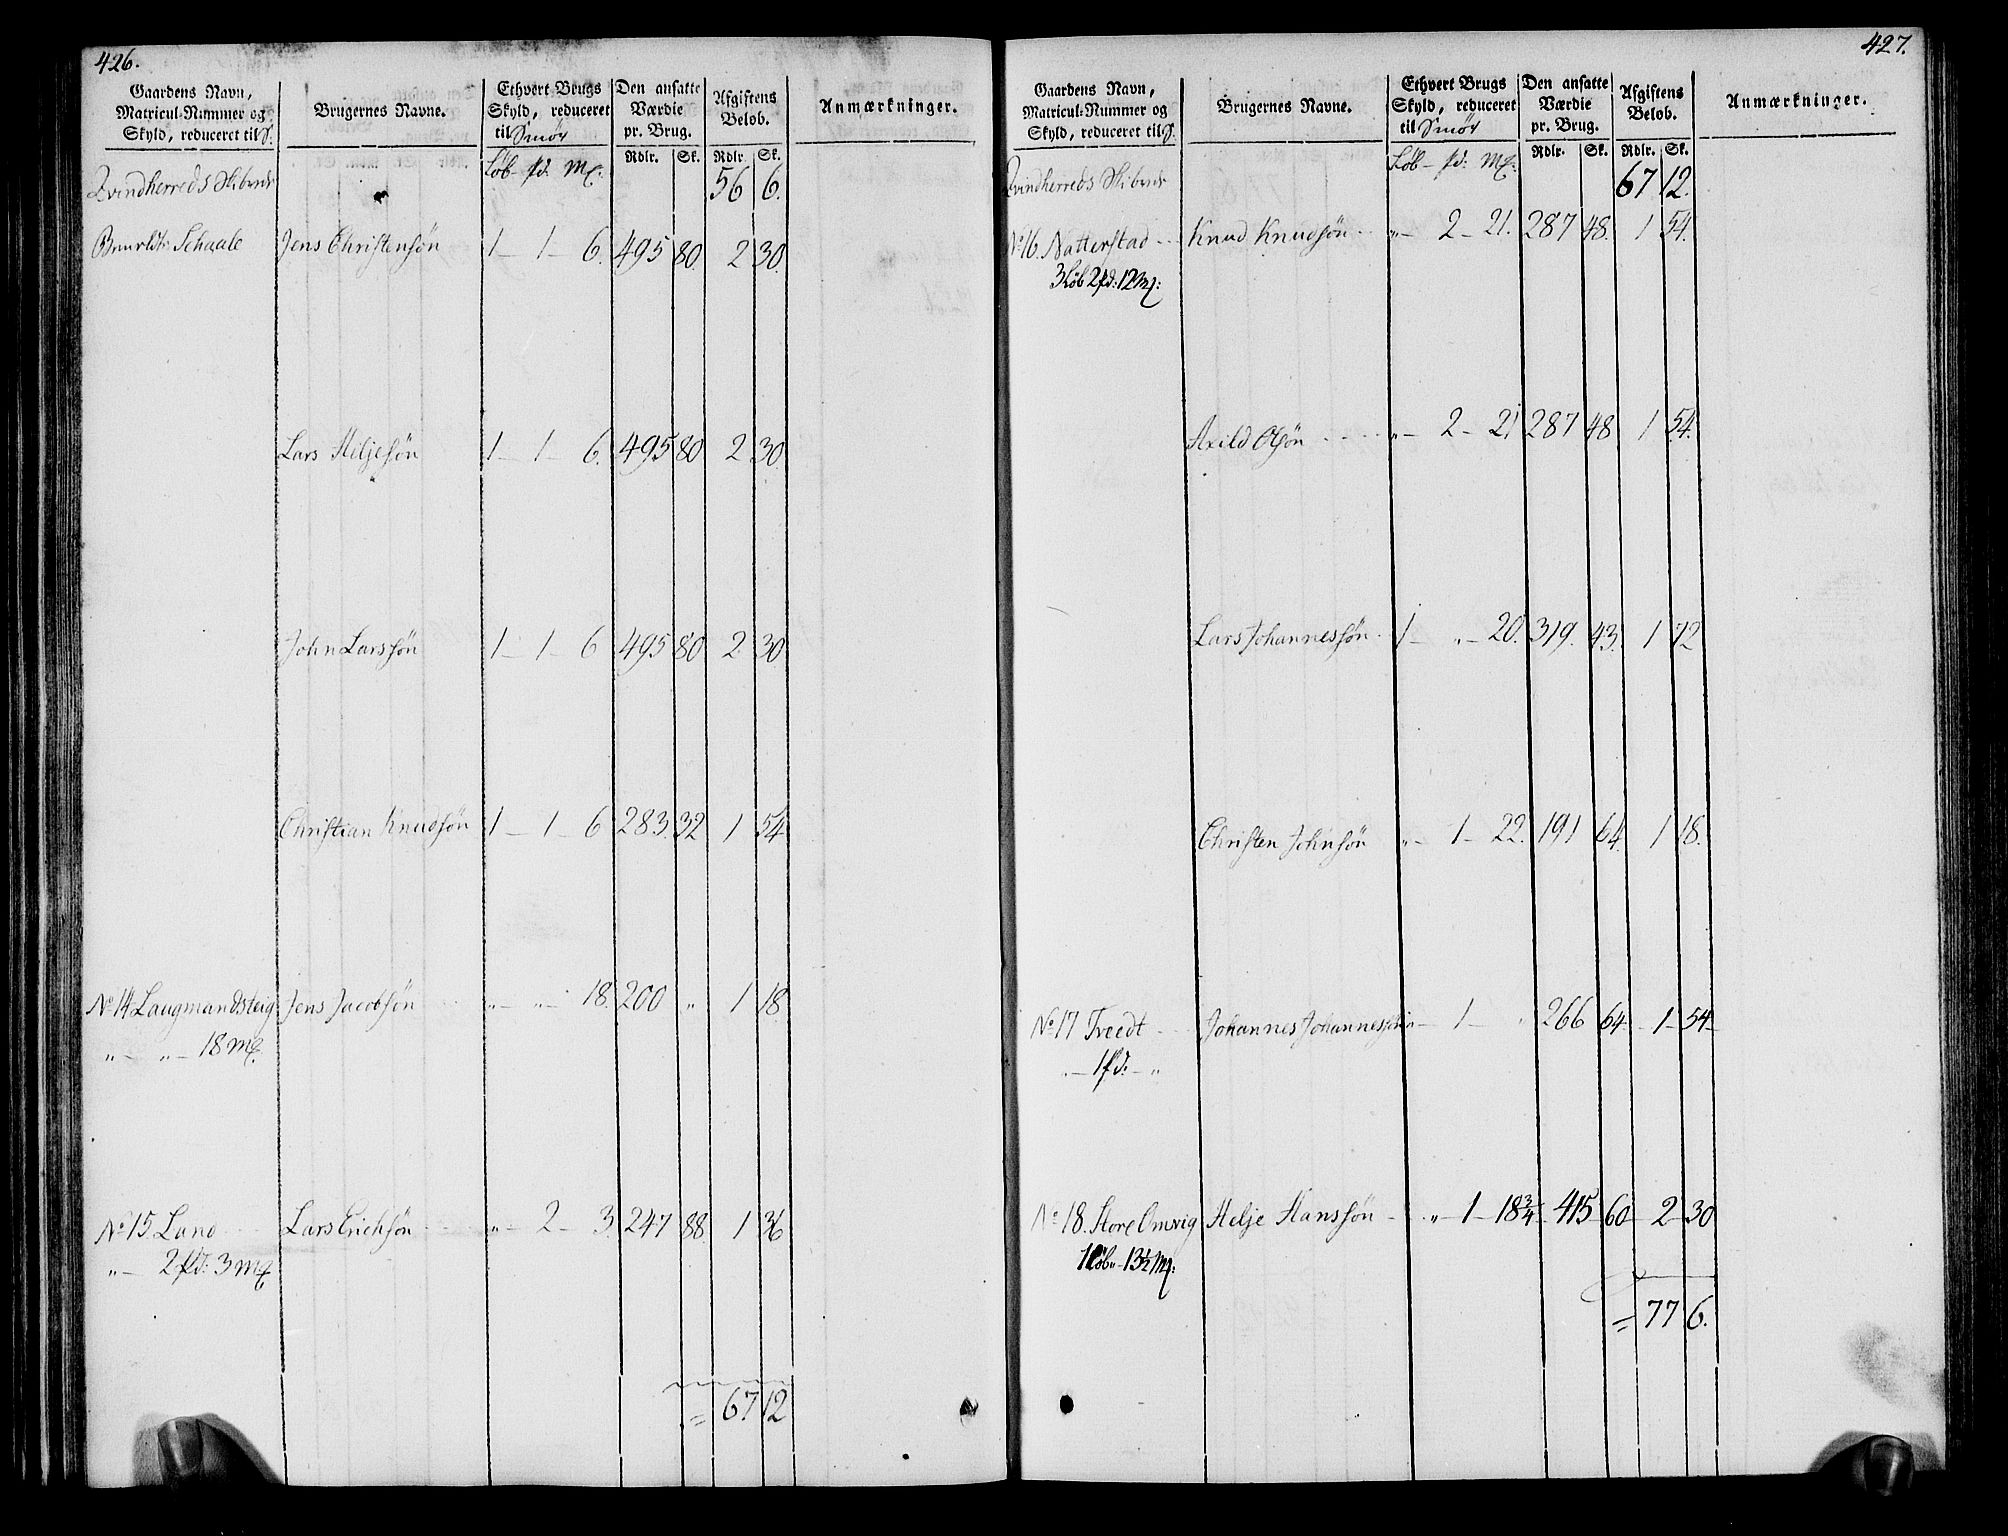 426.
Gaardens Navn,
Matricul-Nummer og
Skyld, reduceret til S.
Brugernes Navne.
Ethvert Brugs
Skyld, reduceret
til Smör
Den ansatte
Værdie
pr. Brug.
Afgiftens
Beløb.
Anmærkninger.
Rdlr. Sk. Rdlr. Sk.
Qvindherreds Skibrede Löb - pd: M&: 56 6.
Schaale Jens Christensön 1 - 1 - 6. 495 80. 2 30.
Lars Heljesön 1 - 1 - 6. 495 80 2 30
John Larssön 1 - 1 - 6 495 80 2 30
Christian Knudsön 1 - 1 - 6 283. 32 1 54
No 14 Laugmandsteig Jens Jacobsön „ - „ - 18. 200 „ 1 18
„ - „ - 18 M&.
No 15 Land Lars Erichsön „ - 2 - 3. 247 88 1 36
„ - 2 pd: 3 M&
= 67 12
427.
Gaardens Navn,
Matricul-Nummer og
Skyld, reduceret til S.
Brugernes Navne.
Ethvert Brugs
Skyld, reduceret
til Smör
Den ansatte
Værdie
pr. Brug.
Afgiftens
Beløb.
Anmærkninger.
Rdlr. Sk. Rdlr. Sk.
Qvindherreds Skibrede Löb - pd: M&: 67 12.
No 16. Natterstad Knud Knudsön „ - 2 - 21. 287 48. 1 54.
3 Löb 2 pd: 12 M&:
Axild Olsön „ - 2 - 21 287 48 1 54.
Lars Johannessön 1 - „ - 20. 319. 43. 1 72
Christen Johnsön „ - 1 - 22. 191 64. 1 18.
No 17 Tveedt Johannes Johannessön - 1 - „ 266 64 - 1 - 54
„ - 1 pd: - „
No 18. Store Omvig Helje Hanssön - „ 1 - 18 3/4 - 415 60 2 - 30
1 Löb „ - 13 1/2 M&:
= 77 6.